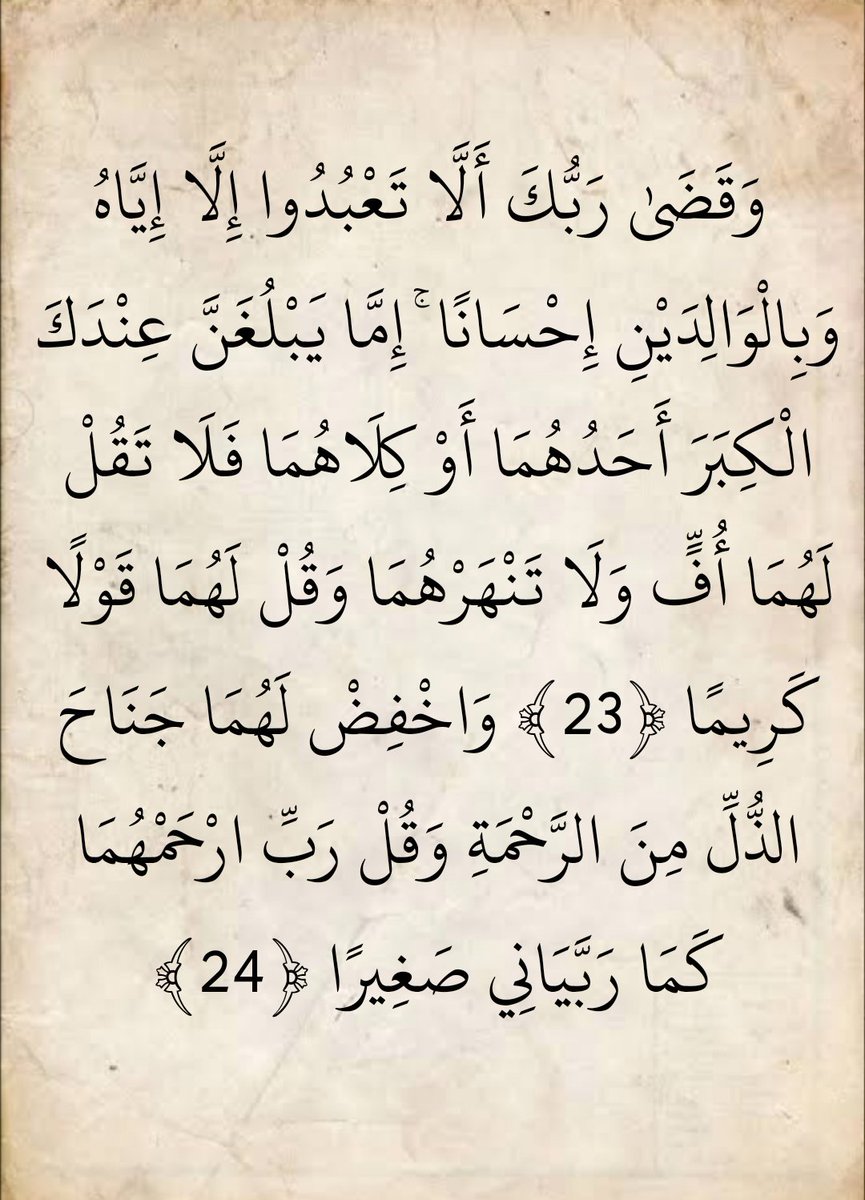 وَقَضَىٰ رَبُّكَ أَلَّا تَعْبُدُوا إِلَّا إِيَّاهُ
وَبِالْوَالِدَيْنِ إِحْسَانًا ۚ إِمَّا يَبْلُغَنَّ عِنْدَكَ
الْكِبَرَ أَحَدُهُمَا أَوْ كِلَاهُمَا فَلَا تَقُلْ
لَهُمَا أُفٍّ وَلَا تَنْهَرْهُمَا وَقُلْ لَهُمَا قَوْلًا
كَرِيمًا ﴿23﴾ وَاخْفِضْ لَهُمَا جَنَاحَ
الذُّلِّ مِنَ الرَّحْمَةِ وَقُلْ رَبِّ ارْحَمْهُمَا
كَمَا رَبَّيَانِي صَغِيرًا ﴿24﴾